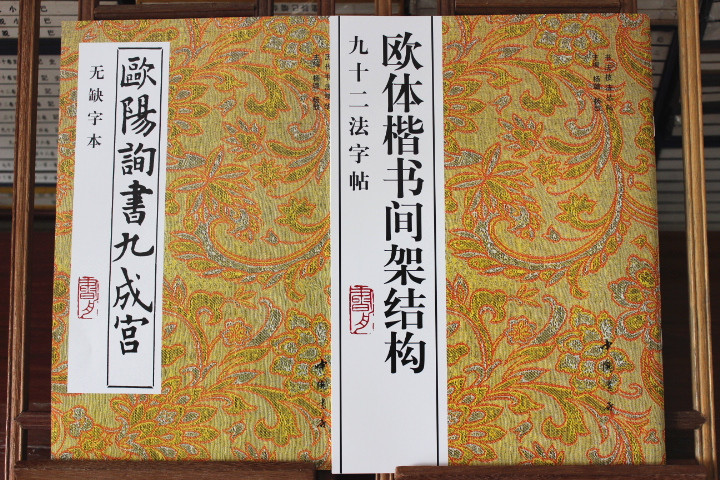 歐陽詢書九成宫
无缺字本
欧体楷书间架结构
九十二法字帖
中國書店
中國書店